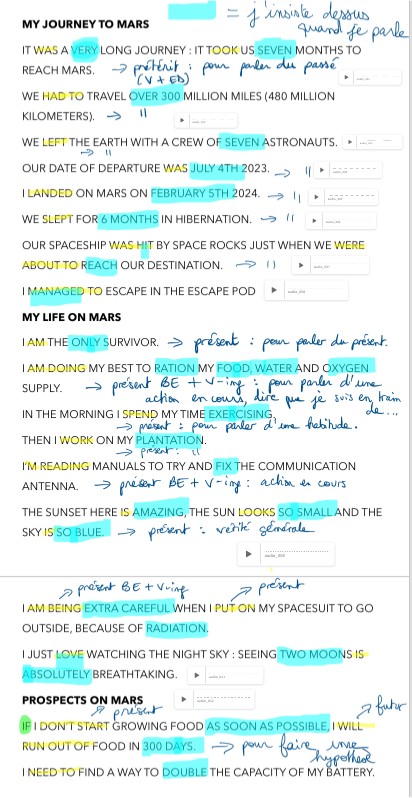 = j'insiste dessus
quand je parle
MY JOURNEY TO MARS
IT WAS A VERY LONG JOURNEY : IT TOOK US SEVEN MONTHS TO
REACH MARS. → prétérit : pour parler du passé
(V + ED)
WE HAD TO TRAVEL OVER 300 MILLION MILES (480 MILLION
KILOMETERS). → "
WE LEFT THE EARTH WITH A CREW OF SEVEN ASTRONAUTS.
→ "
OUR DATE OF DEPARTURE WAS JULY 4TH 2023. → "
I LANDED ON MARS ON FEBRUARY 5TH 2024. → "
WE SLEPT FOR 6 MONTHS IN HIBERNATION. → "
OUR SPACESHIP WAS HIT BY SPACE ROCKS JUST WHEN WE WERE
ABOUT TO REACH OUR DESTINATION. → "
I MANAGED TO ESCAPE IN THE ESCAPE POD
MY LIFE ON MARS
I AM THE ONLY SURVIVOR. → présent : pour parler du présent.
I AM DOING MY BEST TO RATION MY FOOD, WATER AND OXYGEN
SUPPLY. → présent BE + V-ing : pour parler d'une
action en cours, dire que je suis en train
de...
IN THE MORNING I SPEND MY TIME EXERCISING.
→ présent : pour parler d'une habitude.
THEN I WORK ON MY PLANTATION.
→ présent : "
I'M READING MANUALS TO TRY AND FIX THE COMMUNICATION
ANTENNA. → présent BE + V-ing : action en cours
THE SUNSET HERE IS AMAZING, THE SUN LOOKS SO SMALL AND THE
SKY IS SO BLUE. → présent : vérité générale
→ présent BE + V-ing → présent
I AM BEING EXTRA CAREFUL WHEN I PUT ON MY SPACESUIT TO GO
OUTSIDE, BECAUSE OF RADIATION.
I JUST LOVE WATCHING THE NIGHT SKY : SEEING TWO MOONS IS
ABSOLUTELY BREATHTAKING.
PROSPECTS ON MARS
→ présent → futur
IF I DON'T START GROWING FOOD AS SOON AS POSSIBLE, I WILL
RUN OUT OF FOOD IN 300 DAYS. → pour faire une
hypothèse
I NEED TO FIND A WAY TO DOUBLE THE CAPACITY OF MY BATTERY.